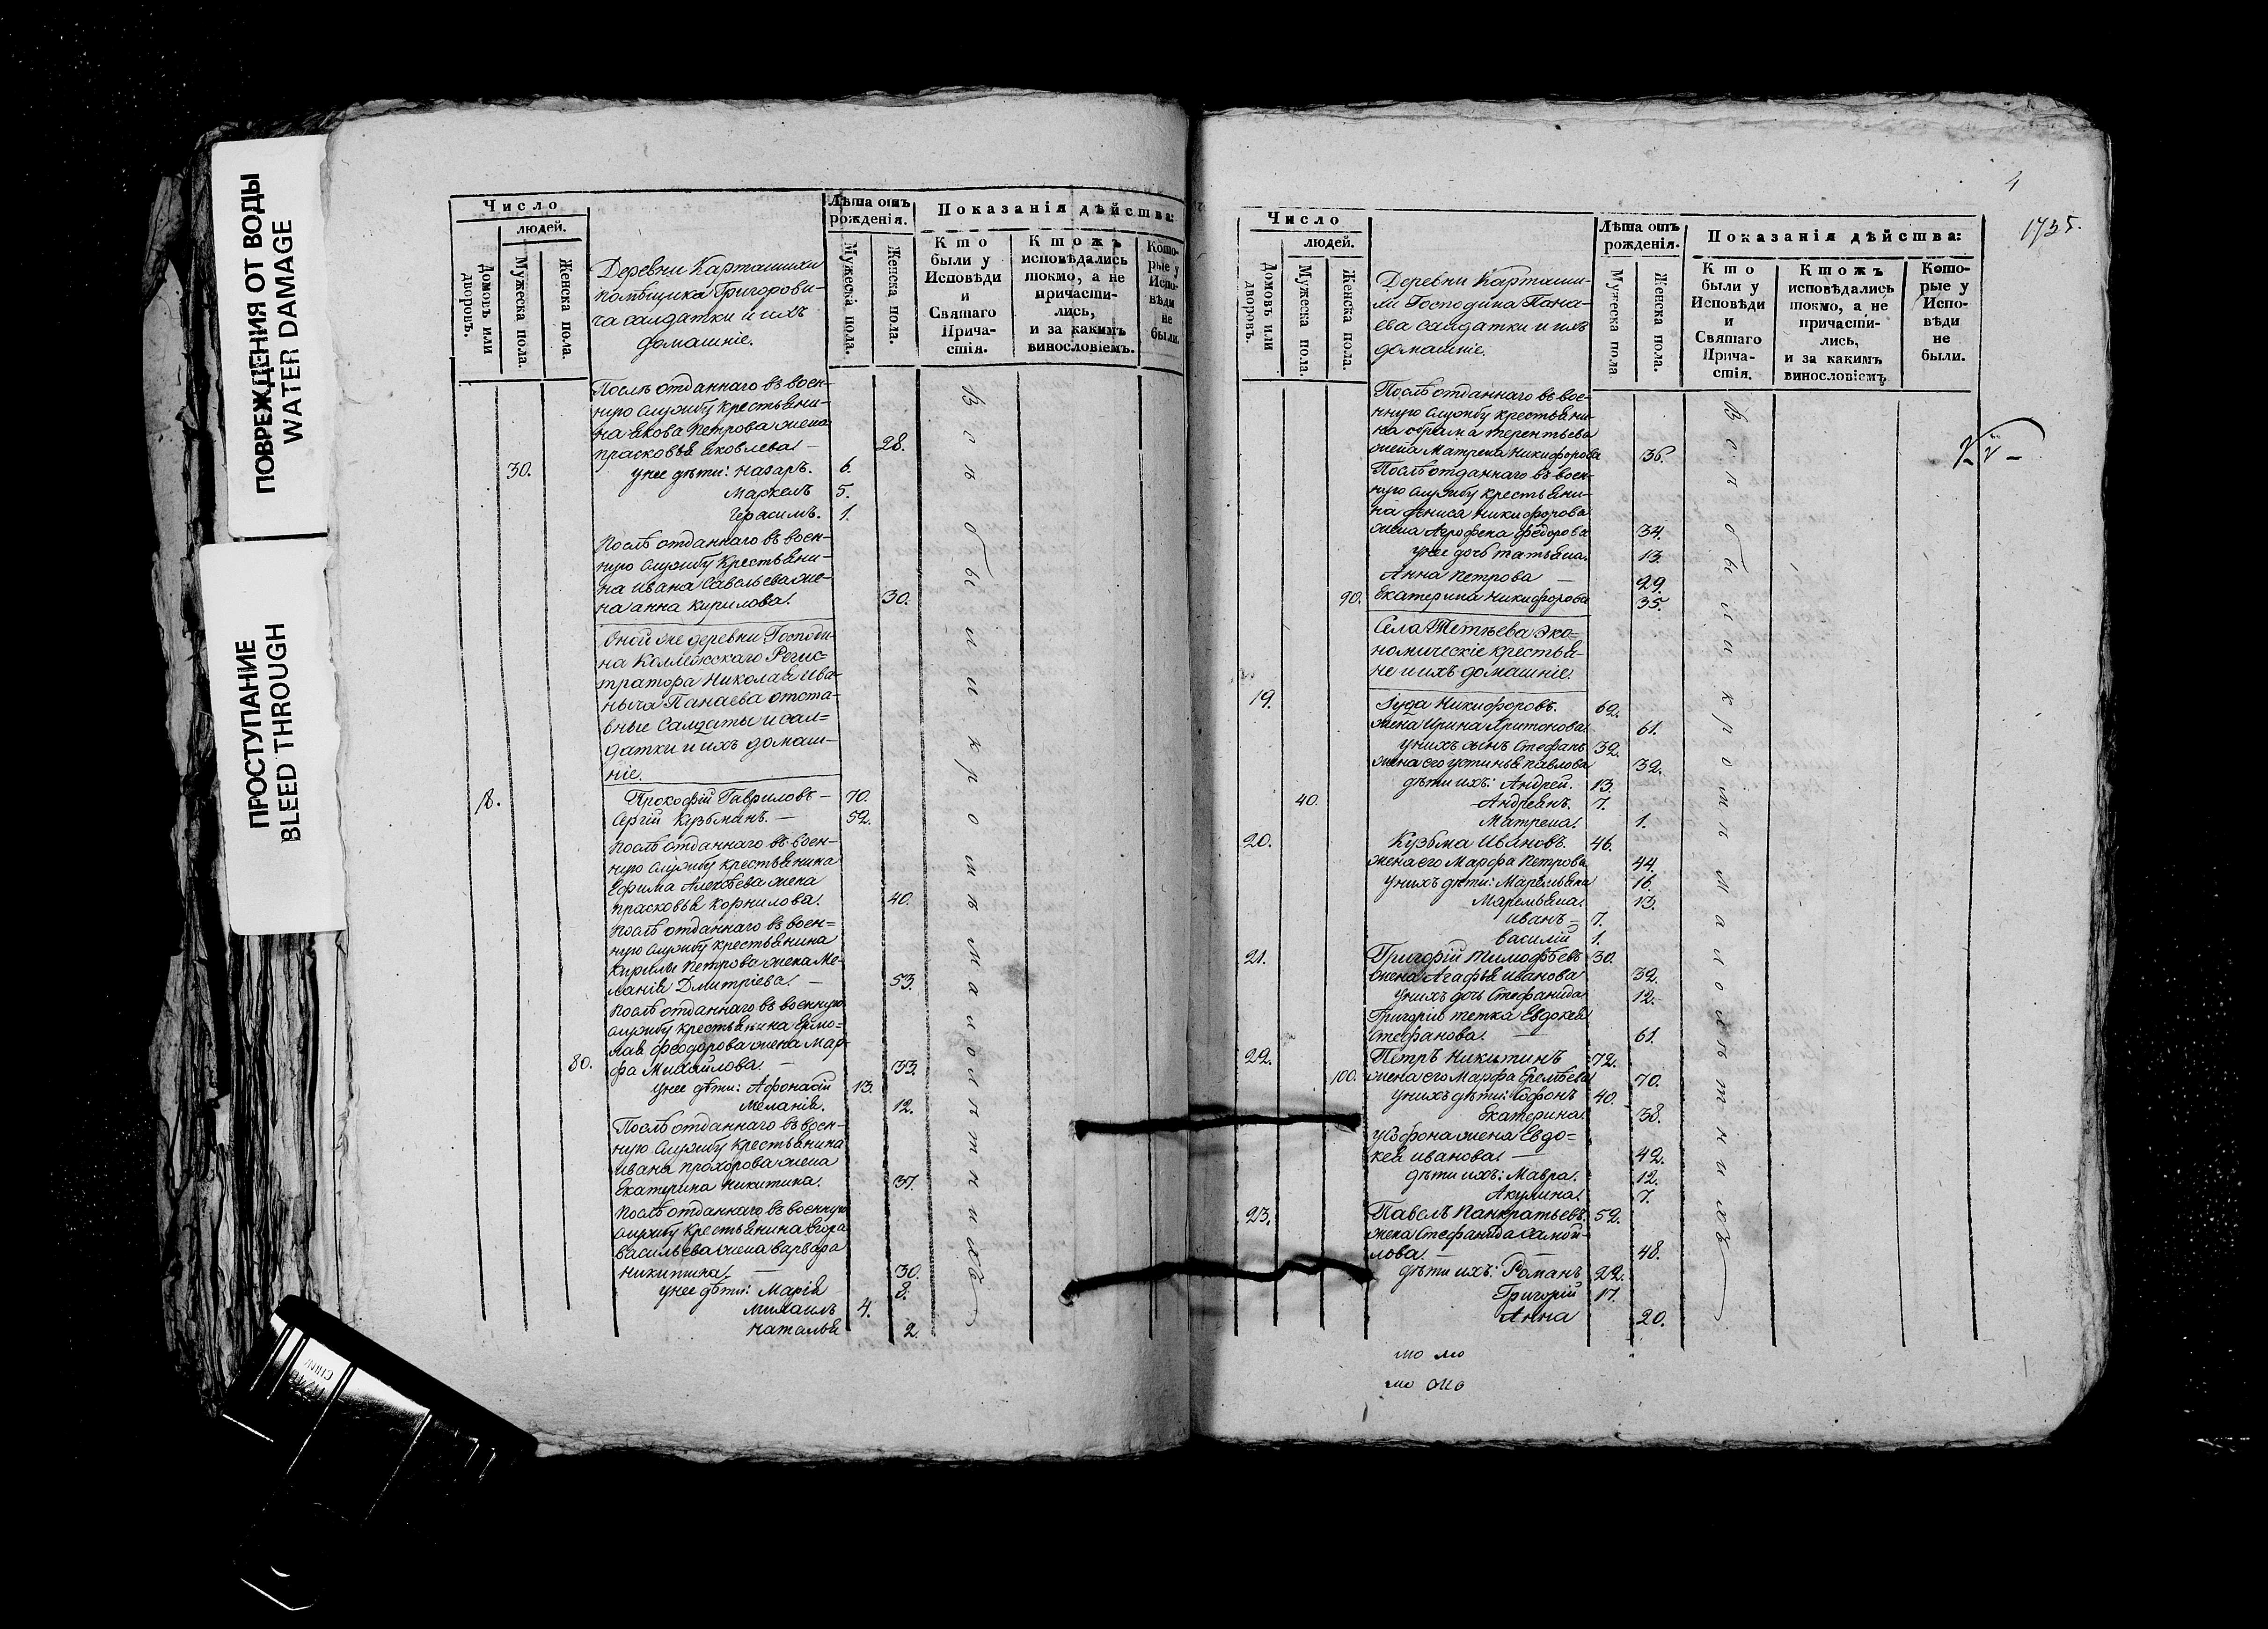 ПОВРЕЖДЕНИЯ ОТ ВОДЫ
WATER DAMAGE
ПРОСТУПАНИЕ
BLEED THROUGH
Число
людей.
Домовъ или дворовъ.
Мужеска пола.
Женска пола.
Деревни Карташихи
помѣщика Григорови-
ча салдатки и ихъ
домашніе.
Лѣта отъ рожденія.
Мужеска пола.
Женска пола.
Показанія дѣйства:
Кто были у Исповѣди и Святаго Причастія.
Ктожъ исповѣдались токмо, а не причасти-лись, и за какимъ винословіемъ.
Кото-рые у Испо-вѣди не были.
Послѣ отданнаго въ воен-
ную службу крестьяни-
на Якова Петрова жена
Прасковья Яковлева. — 28.
30. У нее дѣти: Назаръ. 6.
Маркелъ 5.
Герасимъ. 1.
Послѣ отданнаго въ воен-
ную службу крестьяни-
на Ивана Савельева же-
на Анна Кирилова. 30.
Оной же деревни Господи-
на Коллежскаго Регис-
тратора Николая Ива-
ныча Панаева отста-
вные Салдаты и сал-
датки и ихъ домаш-
ніе.
Прокофій Гавриловъ — 70.
Сергій Кузьманъ. — 52.
Послѣ отданнаго въ воен-
ную службу крестьянина
Ефима Алексѣева жена
Прасковья Корнилова. 40.
Послѣ отданнаго въ воен-
ную службу крестьянина
Кирилы Петрова жена Ме-
ланія Дмитріева. — 53.
Послѣ отданнаго въ военную
службу крестьянина Ермо-
лая Феодорова жена Мар-
80. фа Михайлова. — 33.
У нее дѣти: Афонасій 13.
Меланія. 12.
Послѣ отданнаго въ воен-
ную службу крестьянина
Ивана Прохорова жена
Екатерина Никитина. 37.
Послѣ отданнаго въ военную
службу крестьянина Егора
Васильева жена Варвара
Никитина. — 30.
У нее дѣти: Марія 8.
Михаилъ 4.
Наталья 2.
4
1735.
Число
людей.
Домовъ или дворовъ.
Мужеска пола.
Женска пола.
Деревни Карташи-
хи Господина Пана-
ева салдатки и ихъ
домашніе.
Лѣта отъ рожденія.
Мужеска пола
Женска пола.
Показанія дѣйства:
Кто были у Исповѣди и Святаго Прича-стія.
Ктожъ исповѣдались токмо, а не причасти-лись, и за какимъ винословіемъ
Кото-рые у Испо-вѣди не были.
Послѣ отданнаго въ вое-
нную службу крестьяни-
на Абрама Терентьева
жена Матрена Никифорова 36.
Послѣ отданнаго въ воен-
ную службу крестьяни-
на Дениса Никифорова
жена Агрофена Федорова 34.
У нее дочь Татьяна. 13.
Анна Петрова — 29.
90. Екатерина Никифорова 35.
Села Тетѣева эко-
номическіе крестья-
не и ихъ домашніе.
19. Іуда Никифоровъ. 62.
жена Ирина Харитонова. 61.
У нихъ сынъ Стефанъ 32.
жена его Устинья Павлова 32.
дѣти ихъ: Андрей. 13.
40. Андреянъ. 7.
Матрена. 1.
20. Кузьма Ивановъ. 46.
жена его Марфа Петрова 44.
У нихъ дѣти: Маремьяна 16.
Маремьяна. 13.
Иванъ — 7.
Василій 1.
21. Григорій Тимофѣевъ 30.
жена Агафья Иванова 32.
У нихъ дочь Стефанида 12.
Григорія тетка Евдокея
Стефанова. — 61.
22. Петръ Никитинъ 72.
100. жена его Марфа Еремѣева 70.
У нихъ дѣти: Софонъ 40.
Екатерина. 38.
У Софона жена Евдо-
кея Иванова. — 42.
дѣти ихъ: Мавра. 12.
Акулина. 7.
23. Павелъ Панкратьевъ. 52.
жена Стефанида Самой-
лова. — 48.
дѣти ихъ: Романъ 22.
Григорій 17.
Анна 20.